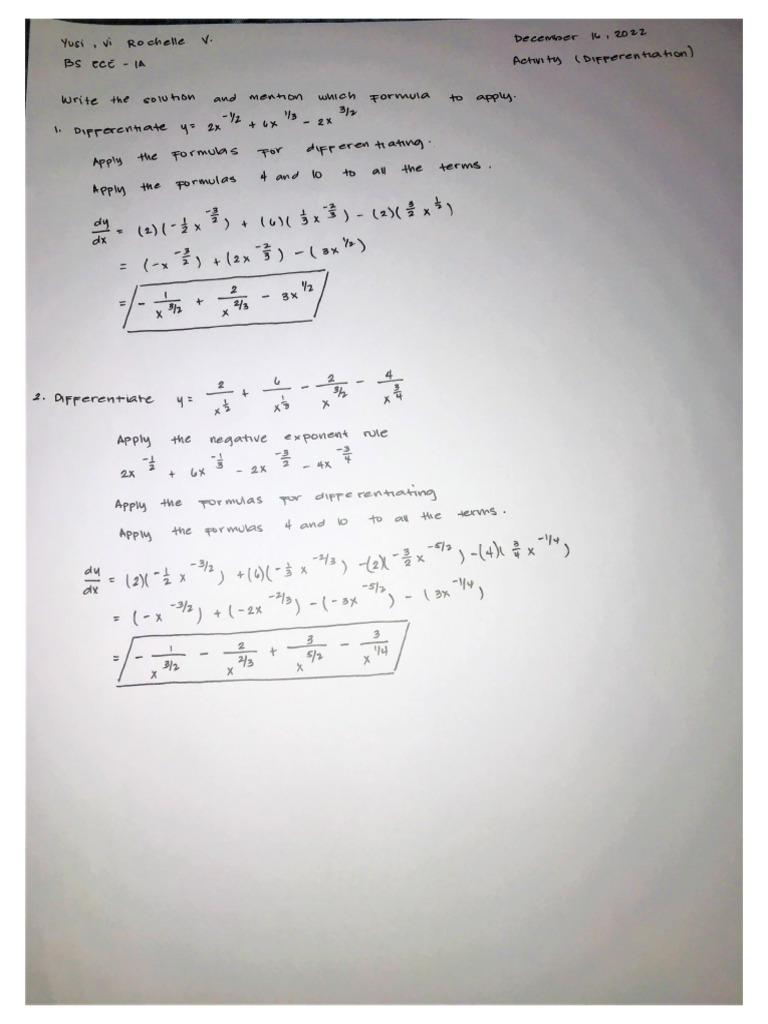 Yusi, Vi Rochelle V.
December 16, 2022
BS ECE - 1A
Activity (Differentiation)
Write the solution and mention which formula to apply.
1. Differentiate y = 2x^{-1/2} + 6x^{1/3} - 2x^{3/2}
Apply the formulas for differentiating.
Apply the formulas 4 and 10 to all the terms.
dy/dx = (2)(-1/2 x^{-3/2}) + (6)(1/3 x^{-2/3}) - (2)(3/2 x^{1/2})
= (-x^{-3/2}) + (2x^{-2/3}) - (3x^{1/2})
= - 1/x^{3/2} + 2/x^{2/3} - 3x^{1/2}
2. Differentiate y = 2/x^{1/2} + 6/x^{1/3} - 2/x^{3/2} - 4/x^{3/4}
Apply the negative exponent rule
2x^{-1/2} + 6x^{-1/3} - 2x^{-3/2} - 4x^{-3/4}
Apply the formulas for differentiating
Apply the formulas 4 and 10 to all the terms.
dy/dx = (2)(-1/2 x^{-3/2}) + (6)(-1/3 x^{-2/3}) - (2)(-3/2 x^{-5/2}) - (4)(3/4 x^{-1/4})
= (-x^{-3/2}) + (-2x^{-2/3}) - (-3x^{-5/2}) - (3x^{-1/4})
= - 1/x^{3/2} - 2/x^{2/3} + 3/x^{5/2} - 3/x^{1/4}